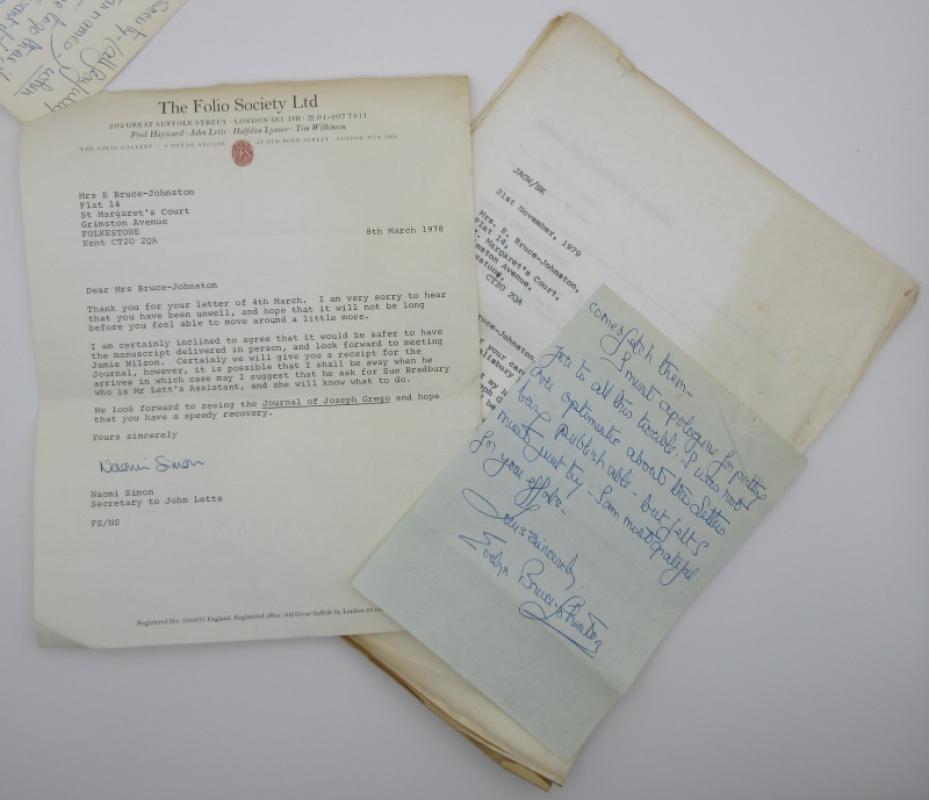 The Folio Society Ltd
202 GREAT SUFFOLK STREET · LONDON SE1 1PR · ☎ 01-407 7411
Fred Hayward · John Letts · Halfdan Lynner · Tim Wilkinson
THE FOLIO GALLERY · 5 ROYAL ARCADE FS 28 OLD BOND STREET · LONDON
Mrs E Bruce-Johnston
Flat 14
St Margaret's Court
Grimston Avenue
FOLKESTONE
Kent CT20 2QA
8th March 1978
Dear Mrs Bruce-Johnston
Thank you for your letter of 4th March. I am very sorry to hear
that you have been unwell, and hope that it will not be long
before you feel able to move around a little more.
I am certainly inclined to agree that it would be safer to have
the manuscript delivered in person, and look forward to meeting
Jamie Wilson. Certainly we will give you a receipt for the
Journal, however, it is possible that I shall be away when he
arrives in which case may I suggest that he ask for Sue Bradbury
who is Mr Lett's Assistant, and she will know what to do.
We look forward to seeing the Journal of Joseph Grego and hope
that you have a speedy recovery.
Yours sincerely
Naomi Simon
Naomi Simon
Secretary to John Letts
FS/NS
England. Registered office: 202 Great Suffolk St, London
JACW/SK
21st November, 1979
Mrs. E. Bruce-Johnston,
Flat 14,
Margaret's Court,
Avenue,
CT20 2QA
Bruce-Johnston,
your
my
be
come & fetch them -
I must apologise for putting
you to all this trouble. I was not
over optimistic about the letters
being publishable - but felt I
must just try - I am most grateful
for your efforts -
Yours sincerely,
Evelyn Bruce-Johnston